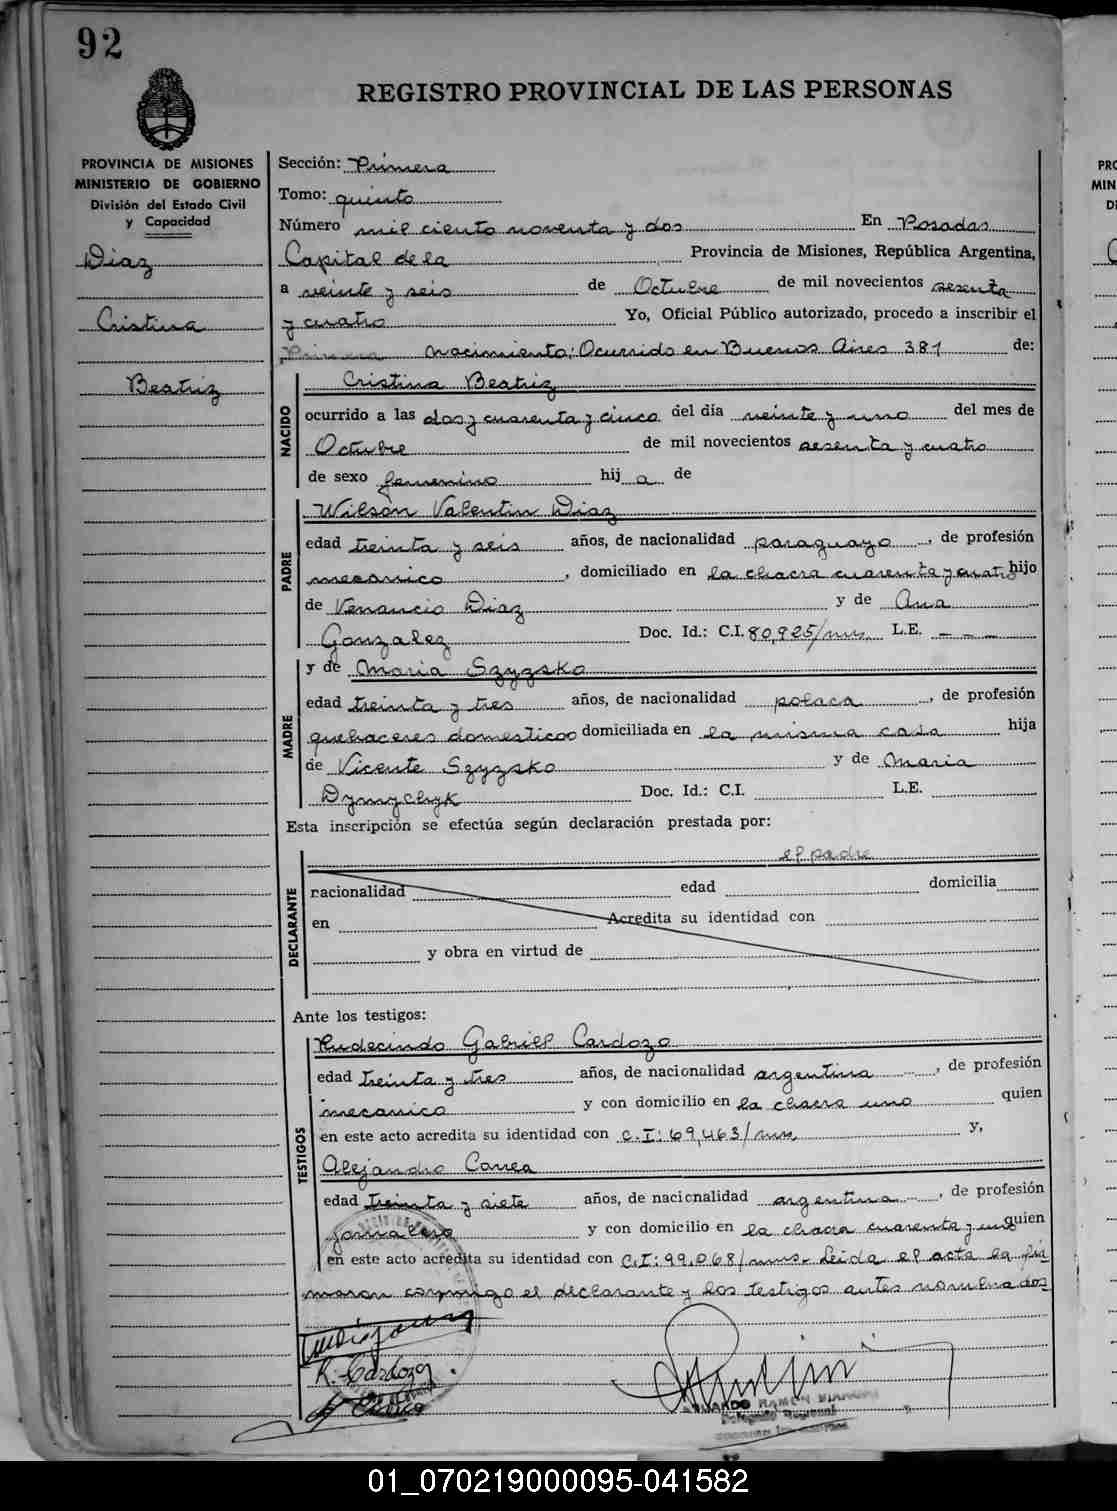 92
REGISTRO PROVINCIAL DE LAS PERSONAS
PROVINCIA DE MISIONES
MINISTERIO DE GOBIERNO
División del Estado Civil
y Capacidad
Diaz
Cristina
Beatriz
Sección: Primera
Tomo: quinto
Número mil ciento noventa y dos En Posadas
Capital de la Provincia de Misiones, República Argentina,
a veinte y seis de Octubre de mil novecientos sesenta
y cuatro Yo, Oficial Público autorizado, procedo a inscribir el
Primera nacimiento: Ocurrido en Buenos Aires 381 de:
NACIDO
Cristina Beatriz
ocurrido a las dos y cuarenta y cinco del día veinte y uno del mes de
Octubre de mil novecientos sesenta y cuatro
de sexo femenino hij a de
PADRE
Wilson Valentin Diaz
edad treinta y seis años, de nacionalidad paraguayo, de profesión
mecanico, domiciliado en la chacra cuarenta y cuatro hijo
de Venancio Diaz y de Ana
Gonzalez Doc. Id.: C.I. 80,925/mns. L.E. - - -
MADRE
y de Maria Szyzsko
edad treinta y tres años, de nacionalidad polaca, de profesión
quehaceres domesticos domiciliada en la misma casa hija
de Vicente Szyzsko y de Maria
Dymychyk Doc. Id.: C.I. L.E.
Esta inscripción se efectúa según declaración prestada por:
el padre
DECLARANTE
racionalidad edad domicilia
en Acredita su identidad con
y obra en virtud de
Ante los testigos:
TESTIGOS
Rudecindo Gabriel Cardozo
edad treinta y tres años, de nacionalidad argentina, de profesión
mecanico y con domicilio en la chacra uno quien
en este acto acredita su identidad con C.I: 69,463/mns. y,
Alejandro Correa
edad treinta y siete años, de nacionalidad argentina, de profesión
jornalero y con domicilio en la chacra cuarenta y uno quien
en este acto acredita su identidad con C.I: 99,068/mns. Leida el acta la fir
maron conmigo el declarante y los testigos antes nombrados
R. Cardozo
EDUARDO RAMON
Delegado Regional
01_070219000095-041582